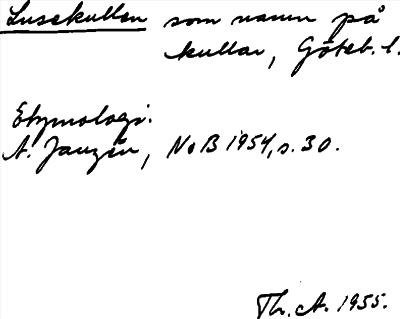 Lusekullen som namn på
kullar, Göteb. l.
Etymologi:
A. Janzén, NoB 1954, s. 30.
Th. A. 1955.